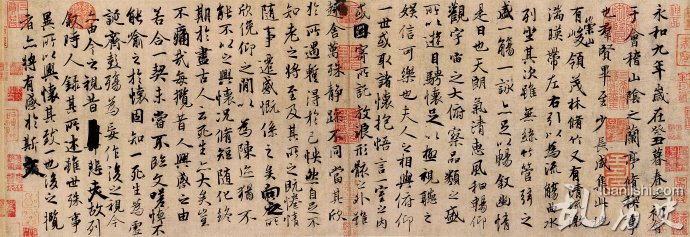 永和九年歲在癸丑暮春之初會
于會稽山陰之蘭亭脩稧事
也羣賢畢至少長咸集此地
有崇山峻領茂林脩竹又有清流激
湍暎帶左右引以為流觴曲水
列坐其次雖無絲竹管弦之
盛一觴一詠亦足以暢敘幽情
是日也天朗氣清惠風和暢仰
觀宇宙之大俯察品類之盛
所以遊目騁懷足以極視聽之
娛信可樂也夫人之相與俯仰
一世或取諸懷抱悟言一室之內
或因寄所託放浪形骸之外雖
趣舍萬殊靜躁不同當其欣
於所遇蹔得於己怏然自足不
知老之將至及其所之既惓情
隨事遷感慨係之矣向之所
欣俛仰之閒以為陳迹猶不
能不以之興懷況脩短隨化終
期於盡古人云死生亦大矣豈
不痛哉每攬昔人興感之由
若合一契未嘗不臨文嗟悼不
能喻之於懷固知一死生為虛
誕齊彭殤為妄作後之視今
亦由今之視昔悲夫故列
敘時人錄其所述雖世殊事
異所以興懷其致一也後之攬
者亦將有感於斯文
乱历史